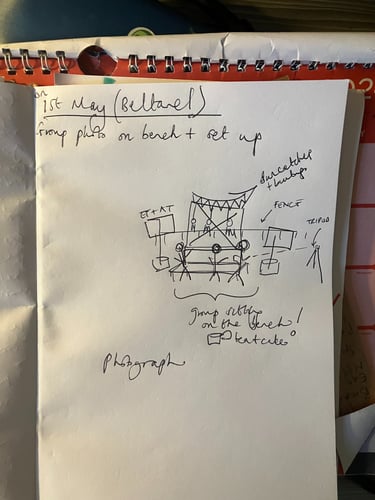 on
1st May (Beltane!)
Group photo on bench + set up
Suncatcher
+ bunting
FENCE
ET + AT
TRIPOD
group sitting
on the bench!
tea + cake
Photograph
202